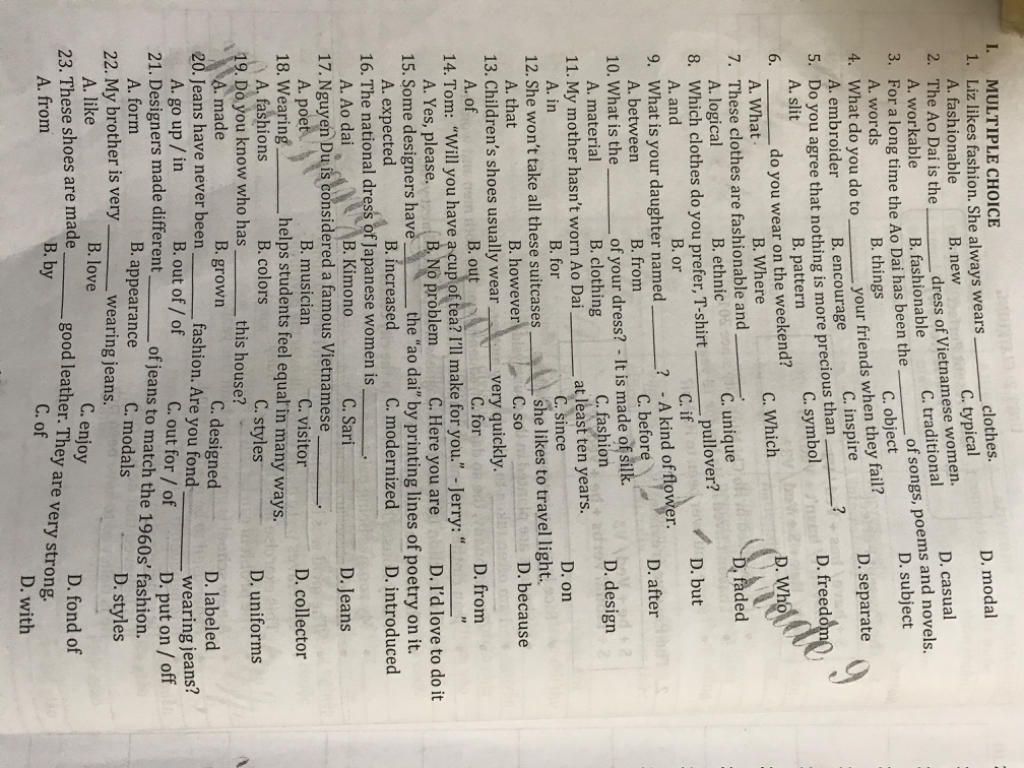 I. MULTIPLE CHOICE
1. Liz likes fashion. She always wears ______ clothes.
A. fashionable B. new C. typical D. modal
2. The Ao Dai is the ______ dress of Vietnamese women.
A. workable B. fashionable C. traditional D. casual
3. For a long time the Ao Dai has been the ______ of songs, poems and novels.
A. words B. things C. object D. subject
4. What do you do to ______ your friends when they fail?
A. embroider B. encourage C. inspire D. separate
5. Do you agree that nothing is more precious than ______?
A. slit B. pattern C. symbol D. freedom
6. ______ do you wear on the weekend?
A. What B. Where C. Which D. Who
7. These clothes are fashionable and ______.
A. logical B. ethnic C. unique D. faded
8. Which clothes do you prefer, T-shirt ______ pullover?
A. and B. or C. if D. but
9. What is your daughter named ______? - A kind of flower.
A. between B. from C. before D. after
10. What is the ______ of your dress? - It is made of silk.
A. material B. clothing C. fashion D. design
11. My mother hasn't worn Ao Dai ______ at least ten years.
A. in B. for C. since D. on
12. She won't take all these suitcases ______ she likes to travel light.
A. that B. however C. so D. because
13. Children's shoes usually wear ______ very quickly.
A. of B. out C. for D. from
14. Tom: "Will you have a cup of tea? I'll make for you." - Jerry: "______"
A. Yes, please. B. No problem C. Here you are D. I'd love to do it
15. Some designers have ______ the "ao dai" by printing lines of poetry on it.
A. expected B. increased C. modernized D. introduced
16. The national dress of Japanese women is ______.
A. Ao dai B. Kimono C. Sari D. Jeans
17. Nguyen Du is considered a famous Vietnamese ______.
A. poet B. musician C. visitor D. collector
18. Wearing ______ helps students feel equal in many ways.
A. fashions B. colors C. styles D. uniforms
19. Do you know who has ______ this house?
A. made B. grown C. designed D. labeled
20. Jeans have never been ______ fashion. Are you fond ______ wearing jeans?
A. go up / in B. out of / of C. out for / of D. put on / off
21. Designers made different ______ of jeans to match the 1960s' fashion.
A. form B. appearance C. modals D. styles
22. My brother is very ______ wearing jeans.
A. like B. love C. enjoy D. fond of
23. These shoes are made ______ good leather. They are very strong.
A. from B. by C. of D. with